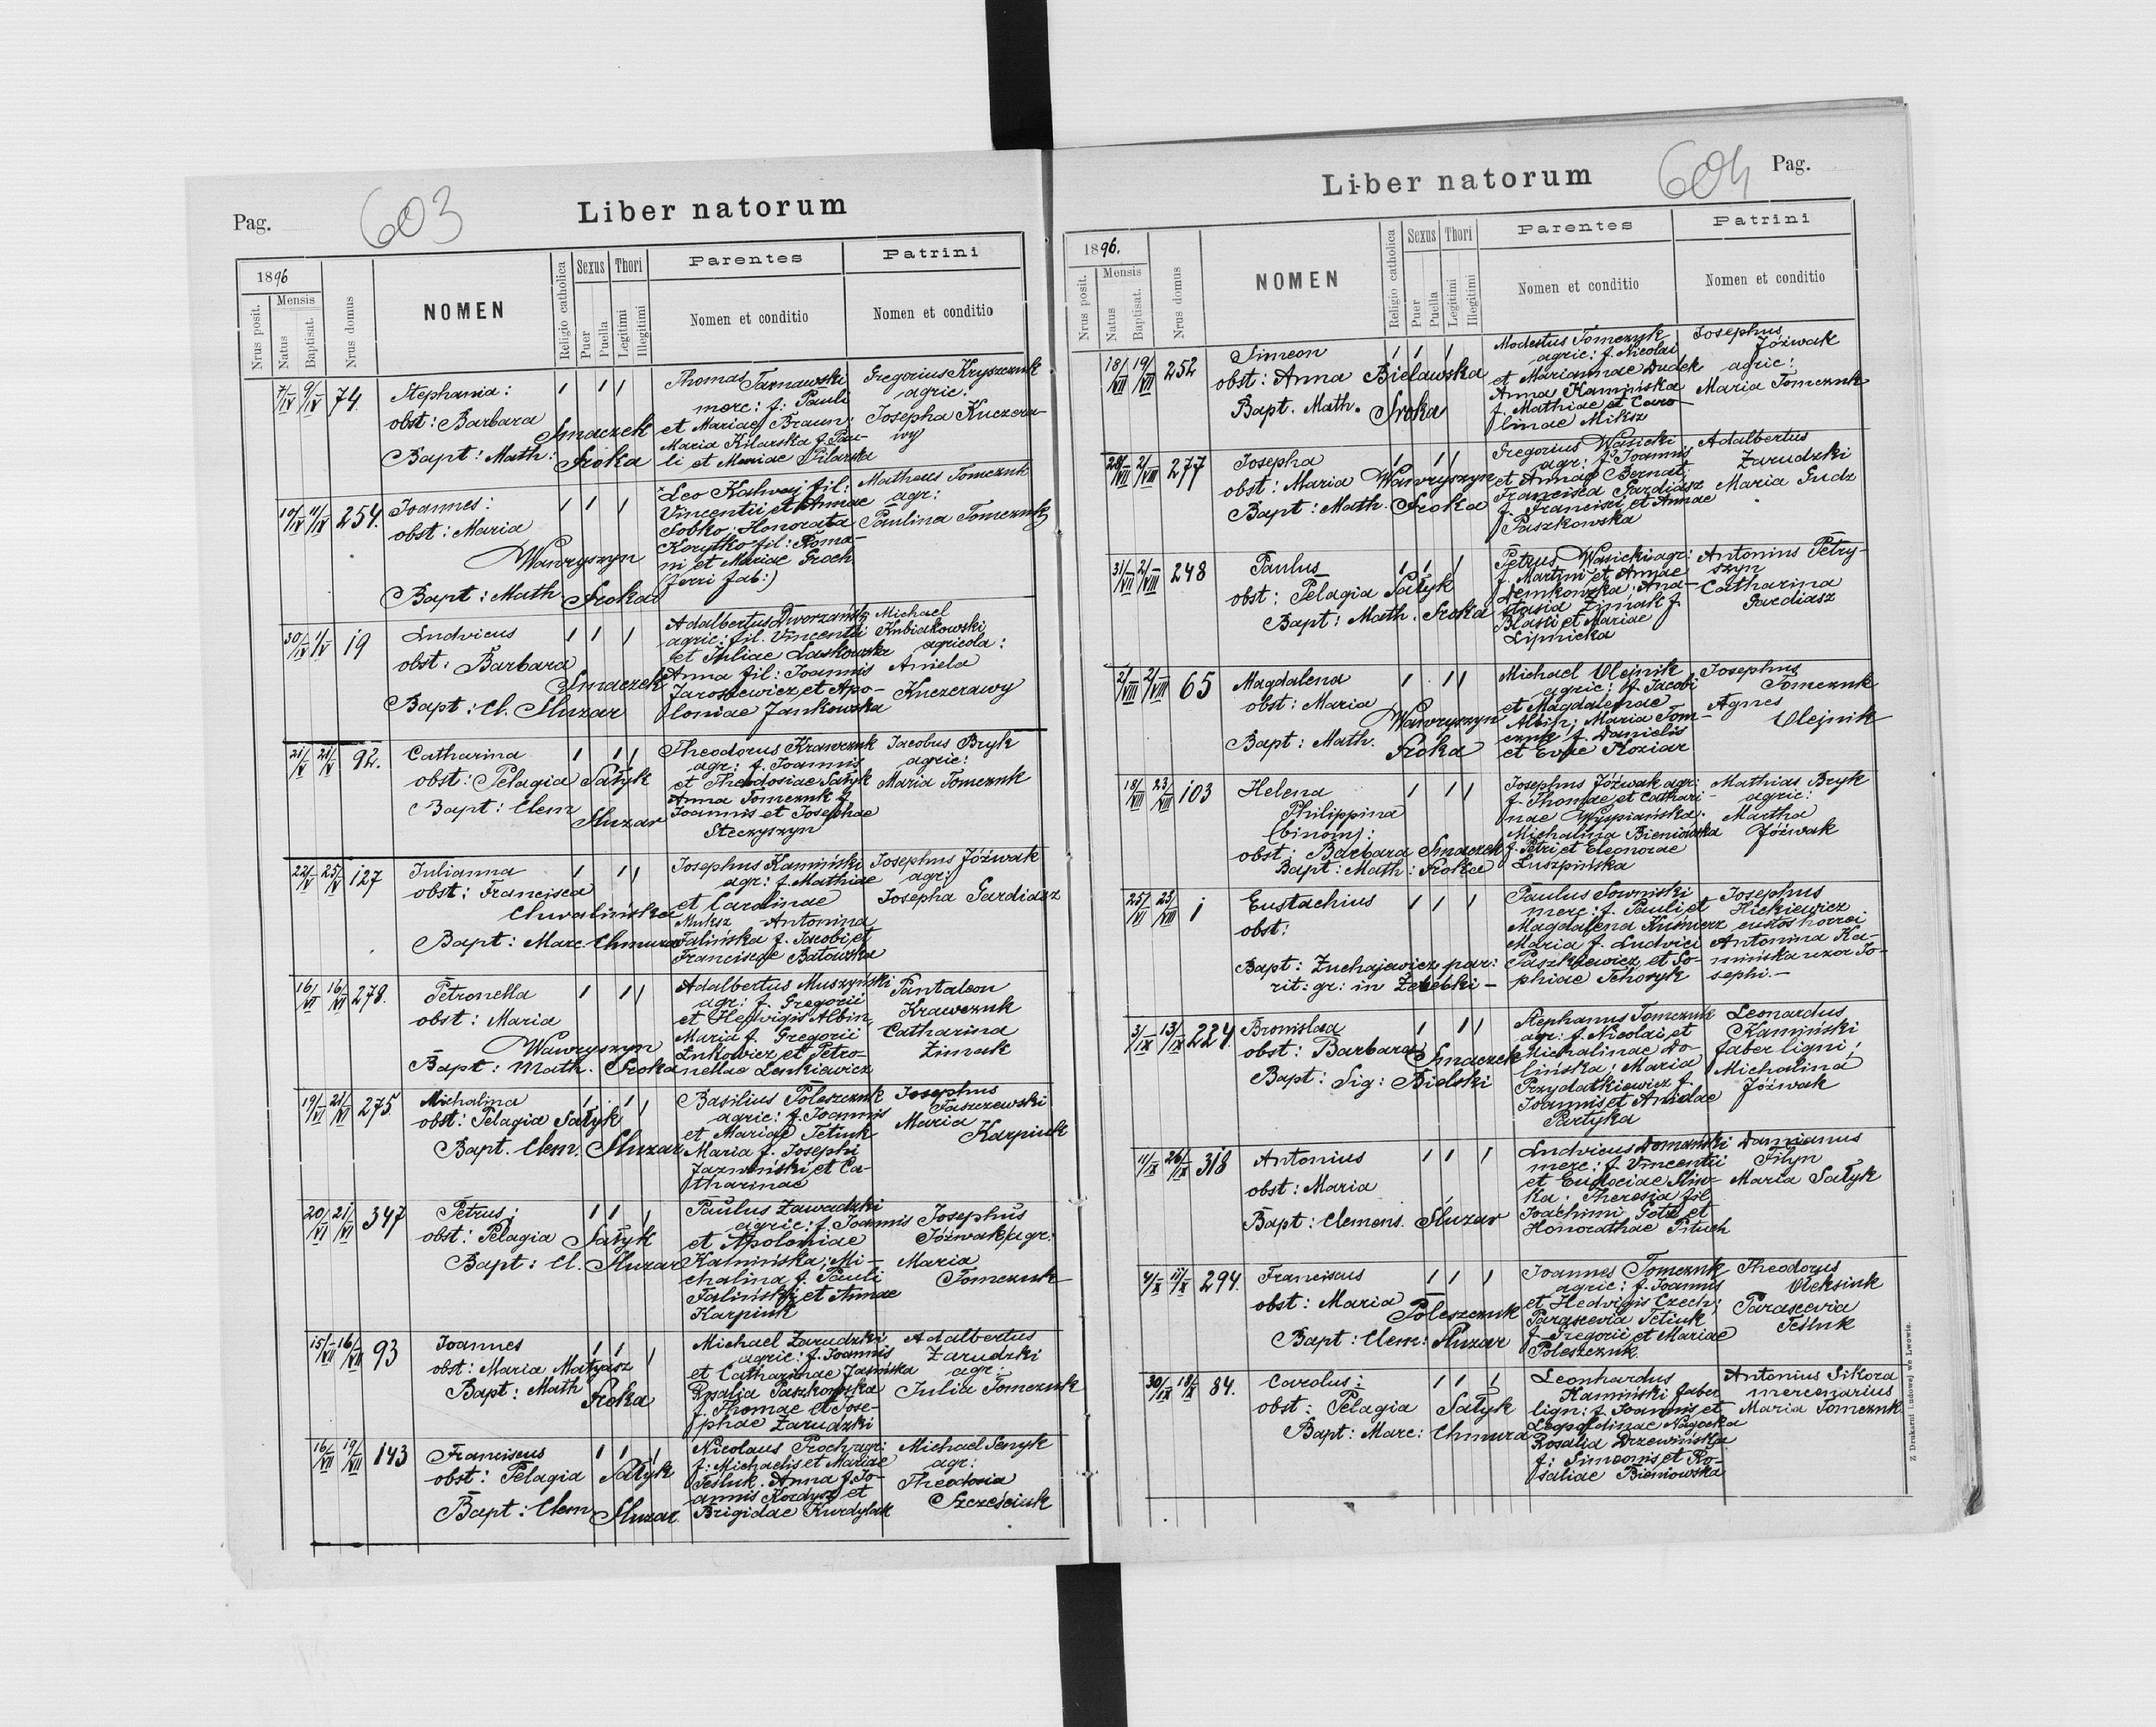 Pag.
603
Liber natorum
1896
Nrus posit.
Mensis
Natus
Baptisat.
Nrus domus
NOMEN
Religio catholica
Sexus
Puer
Puella
Thori
Legitimi
Illegitimi
Parentes
Nomen et conditio
Patrini
Nomen et conditio
7/IV 9/IV 74.
Stephania:
obst: Barbara
Smaczek
Bapt: Math: Sroka
Thomas Tarnawski
merc: f: Pauli
et Mariae Braun;
Maria Kilarska f. Pau-
li et Mariae Pilarska
Gregorius Kryszczuk
agric.
Josepha Kuczera-
wy
10/IV 11/IV 254.
Joannes:
obst: Maria
Wawryszyn
Bapt: Math. Sroka
Leo Kalwaj fil:
Vincentii et Annae
Sobko; Honorata
Korytko fil: Roma-
ni et Mariae Groch
(ferri fab:)
Matheus Tomczuk
agr:
Paulina Tomczuk
30/IV 1/V 19
Ludvicus
obst: Barbara
Smaczek
Bapt: Cl. Sluzar
Adalbertus Dworzański
agric: fil. Vincentii
et Juliae Laskowska
Anna fil: Joannis
Jaroszewicz et Apo-
loniae Jankowska
Michael
Kubiakowski
agricola:
Aniela
Kuczerawy
21/V 21/V 92.
Catharina
obst: Pelagia Sałyk
Bapt: Clem
Sluzar
Theodorus Krawczuk
agr: f. Joannis
et Theodosiae Sałyk
Anna Tomczuk f.
Joannis et Josephae
Steczyszyn
Jacobus Bryk
agric:
Maria Tomczuk
22/V 25/V 127
Julianna
obst: Francisca
Chwalińska
Bapt: Marc. Chmura
Josephus Kamiński
agr: f. Mathiae
et Carolinae
Muksz Antonina
Falińska f. Jacobi et
Franciscae Batowska
Josephus Jóźwak
agr:
Josepha Gardiasz
16/VI 16/VI 278.
Petronella
obst: Maria
Wawryszyn
Bapt: Math. Sroka
Adalbertus Muszyński
agr: f. Gregorii
et Hedvigis Albin,
Maria f. Gregorii
Lukowicz et Petro-
nellae Lenkiewicz
Pantaleon
Krawczuk
Catharina
Zimak
19/VI 21/VI 275
Michalina
obst: Pelagia Sałyk
Bapt. Clem. Sluzar
Basilius Poleszczuk
agric: f. Joannis
et Mariae Tetiuk
Maria f. Josephi
Jazwiński et Ca-
tharinae
Josephus
Taszczewski
Maria
Karpiuk
20/VI 21/VI 347
Petrus;
obst: Pelagia Sałyk
Bapt: Cl. Sluzar
Paulus Zawadzki
agric: f. Joannis
et Apoloniae
Kamińska; Mi-
chalina f. Pauli
Faliński et Annae
Karpiuk
Josephus
Jóźwak agr:
Maria
Tomczuk
15/VII 16/VII 93
Joannes
obst: Maria Matyasz
Bapt: Math
Sroka
Michael Zarudzki
agric: f. Joannis
et Catharinae Jasińska
Rosalia Paszkowska
f. Thomae et Jose-
phae Zarudzki
Adalbertus
Zarudzki
agr:
Julia Tomczuk
16/VII 19/VII 143
Franciscus
obst: Pelagia Sałyk
Bapt: Clem Sluzar
Nicolaus Proch agr:
f: Michaelis et Mariae
Tesluk. Anna f. Jo-
annis Kozdysz et
Brigidae Kurdylak
Michael Senyk
agr:
Theodosia
Szcześciuk
Liber natorum
604
Pag.
1896.
Nrus posit.
Mensis
Natus
Baptisat.
Nrus domus
NOMEN
Religio catholica
Sexus
Puer
Puella
Thori
Legitimi
Illegitimi
Parentes
Nomen et conditio
Patrini
Nomen et conditio
18/VII 19/VII 252
Simeon
obst: Anna Bielawska
Bapt. Math. Sroka
Modestus Tomczyk
agric: f. Nicolai
et Mariannae Dudek
Anna Kamińska
f. Mathiae et Caro-
linae Miksz
Josephus
Jóźwak
agric:
Maria Tomczuk
28/VII 2/VIII 277
Josepha
obst: Maria Wawryszyn
Bapt: Math. Sroka
Gregorius Wasicki
agr: f. Joannis
et Annae Bernat;
Francisca Gardiasz
f. Francisci et Annae
Paszkowska
Adalbertus
Zarudzki
Maria Gudz
31/VII 2/VIII 248
Paulus
obst: Pelagia Sałyk
Bapt: Math. Sroka
Petrus Wasicki agr:
f. Martini et Annae
Demkowska; Ana-
stasia Zimak f.
Blasii et Mariae
Lipnicka
Antonius Petry-
szyn
Catharina
Gardiasz
2/VIII 2/VIII 65
Magdalena
obst: Maria
Wawryszyn
Bapt: Math. Sroka
Michael Olejnik
agric: f. Jacobi
et Magdalenae
Albin; Maria Tom-
czuk f. Danielis
et Evae Koziar
Josephus
Tomczuk
Agnes
Olejnik
18/VIII 23/VIII 103
Helena
Philippina
(binom):
obst: Barbara Smaczek
Bapt: Math: Sroka
Josephus Jóźwak agr:
f. Thomae et Cathari-
nae Wyspiańska.
Michalina Bieniowska
f. Petri et Eleonorae
Luszpińska
Mathias Bryk
agric:
Martha
Jóźwak
25/VI 23/VIII 1
Eustachius
obst:
Bapt: Zuchajewicz par:
rit: gr: in Żeleńki -
Paulus Sowński
merc: f. Pauli et
Magdalena Kusnierz
Maria f. Ludvici
Paszkiewicz et So-
phiae Tchoryk
Josephus
Hickiewicz
custos horrei
Antonina Ka-
mińska uxor Jo-
sephi.-
3/IX 13/IX 224.
Bronislaa
obst: Barbara Smaczek
Bapt: Sig: Bielski
Stephanus Tomczuk
agr: f. Nicolai et
Michalinae Do-
lińska; Maria
Przydatkiewicz f.
Joannis et Anidae
Partyka
Leonardus
Kamiński
faber ligni;
Michalina
Jóźwak
11/IX 26/IX 318
Antonius
obst: Maria
Bapt: Clemens. Sluzar
Ludvicus Domański
merc: f. Vincentii
et Eudociae Slin-
ka; Theresia fil
Joachimi Gotz et
Honorathae Pituch
Damianus
Filyn
Maria Sałyk
4/X 11/X 294.
Franciscus
obst: Maria
Poleszczuk
Bapt: Clem: Sluzar
Joannes Tomczuk
agric: f. Joannis
et Hedvigis Czech;
Parascevia Tetiuk
f. Gregorii et Mariae
Poleszczuk.
Theodorus
Oleksiuk
Parascevia
Tesluk
30/IX 18/X 84.
Carolus:
obst: Pelagia Sałyk
Bapt: Marc: Chmura
Leonhardus
Kamiński faber
lign: f. Joannis et
Leopoldinae Nagocka
Rosalia Drzewińska
f: Simeonis et Ro-
saliae Bieniowska
Antonius Sikora
mercenarius
Maria Tomczuk
Z Drukarni Ludowej we Lwowie.